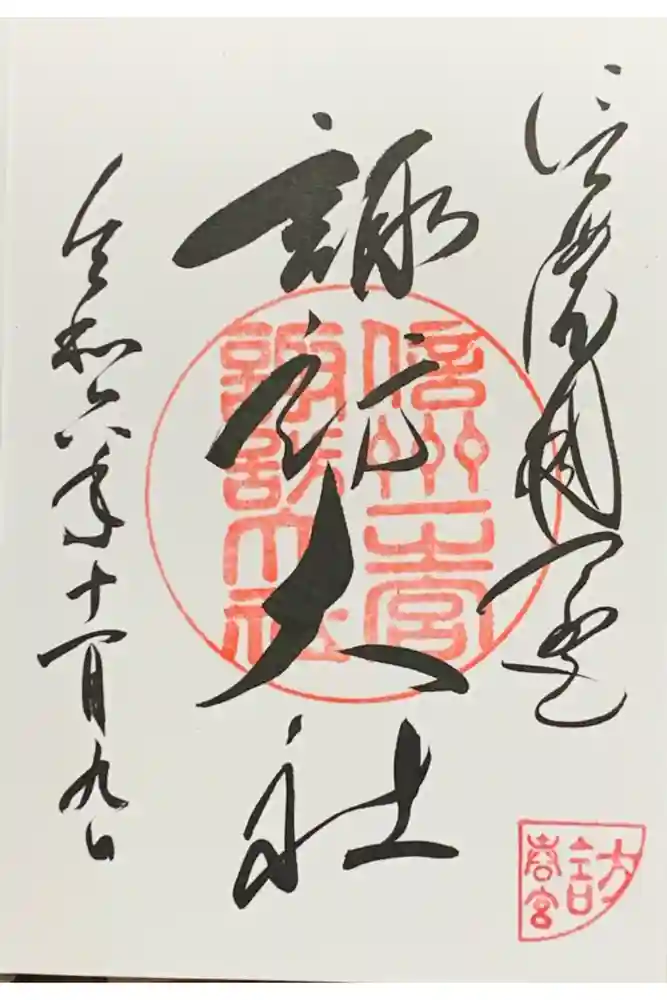 信濃國一宮
諏訪大社
令和六年十一月九日
信州一之宮
諏訪大社
訪
春宮